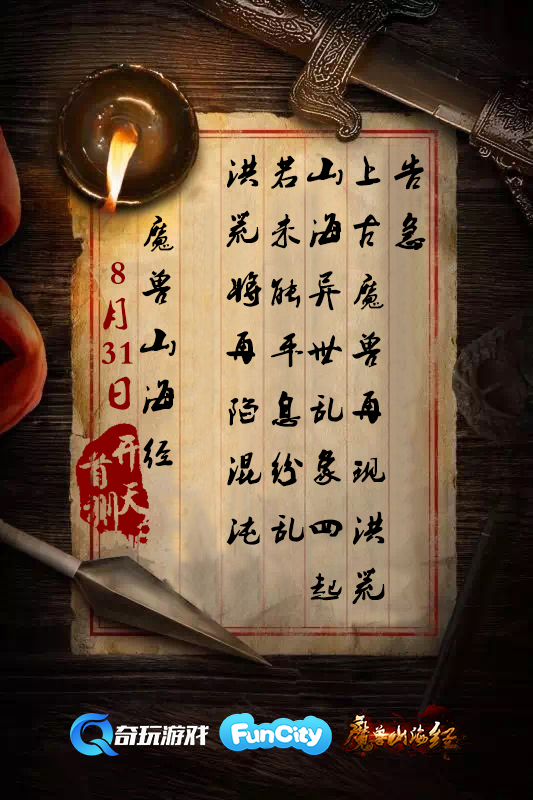 告急
上古魔兽再现洪荒
山海异世乱象四起
若未能平息纷乱
洪荒将再陷混沌
魔兽山海经
8月31日
开天
首测
奇玩游戏
FunCity
魔兽山海经